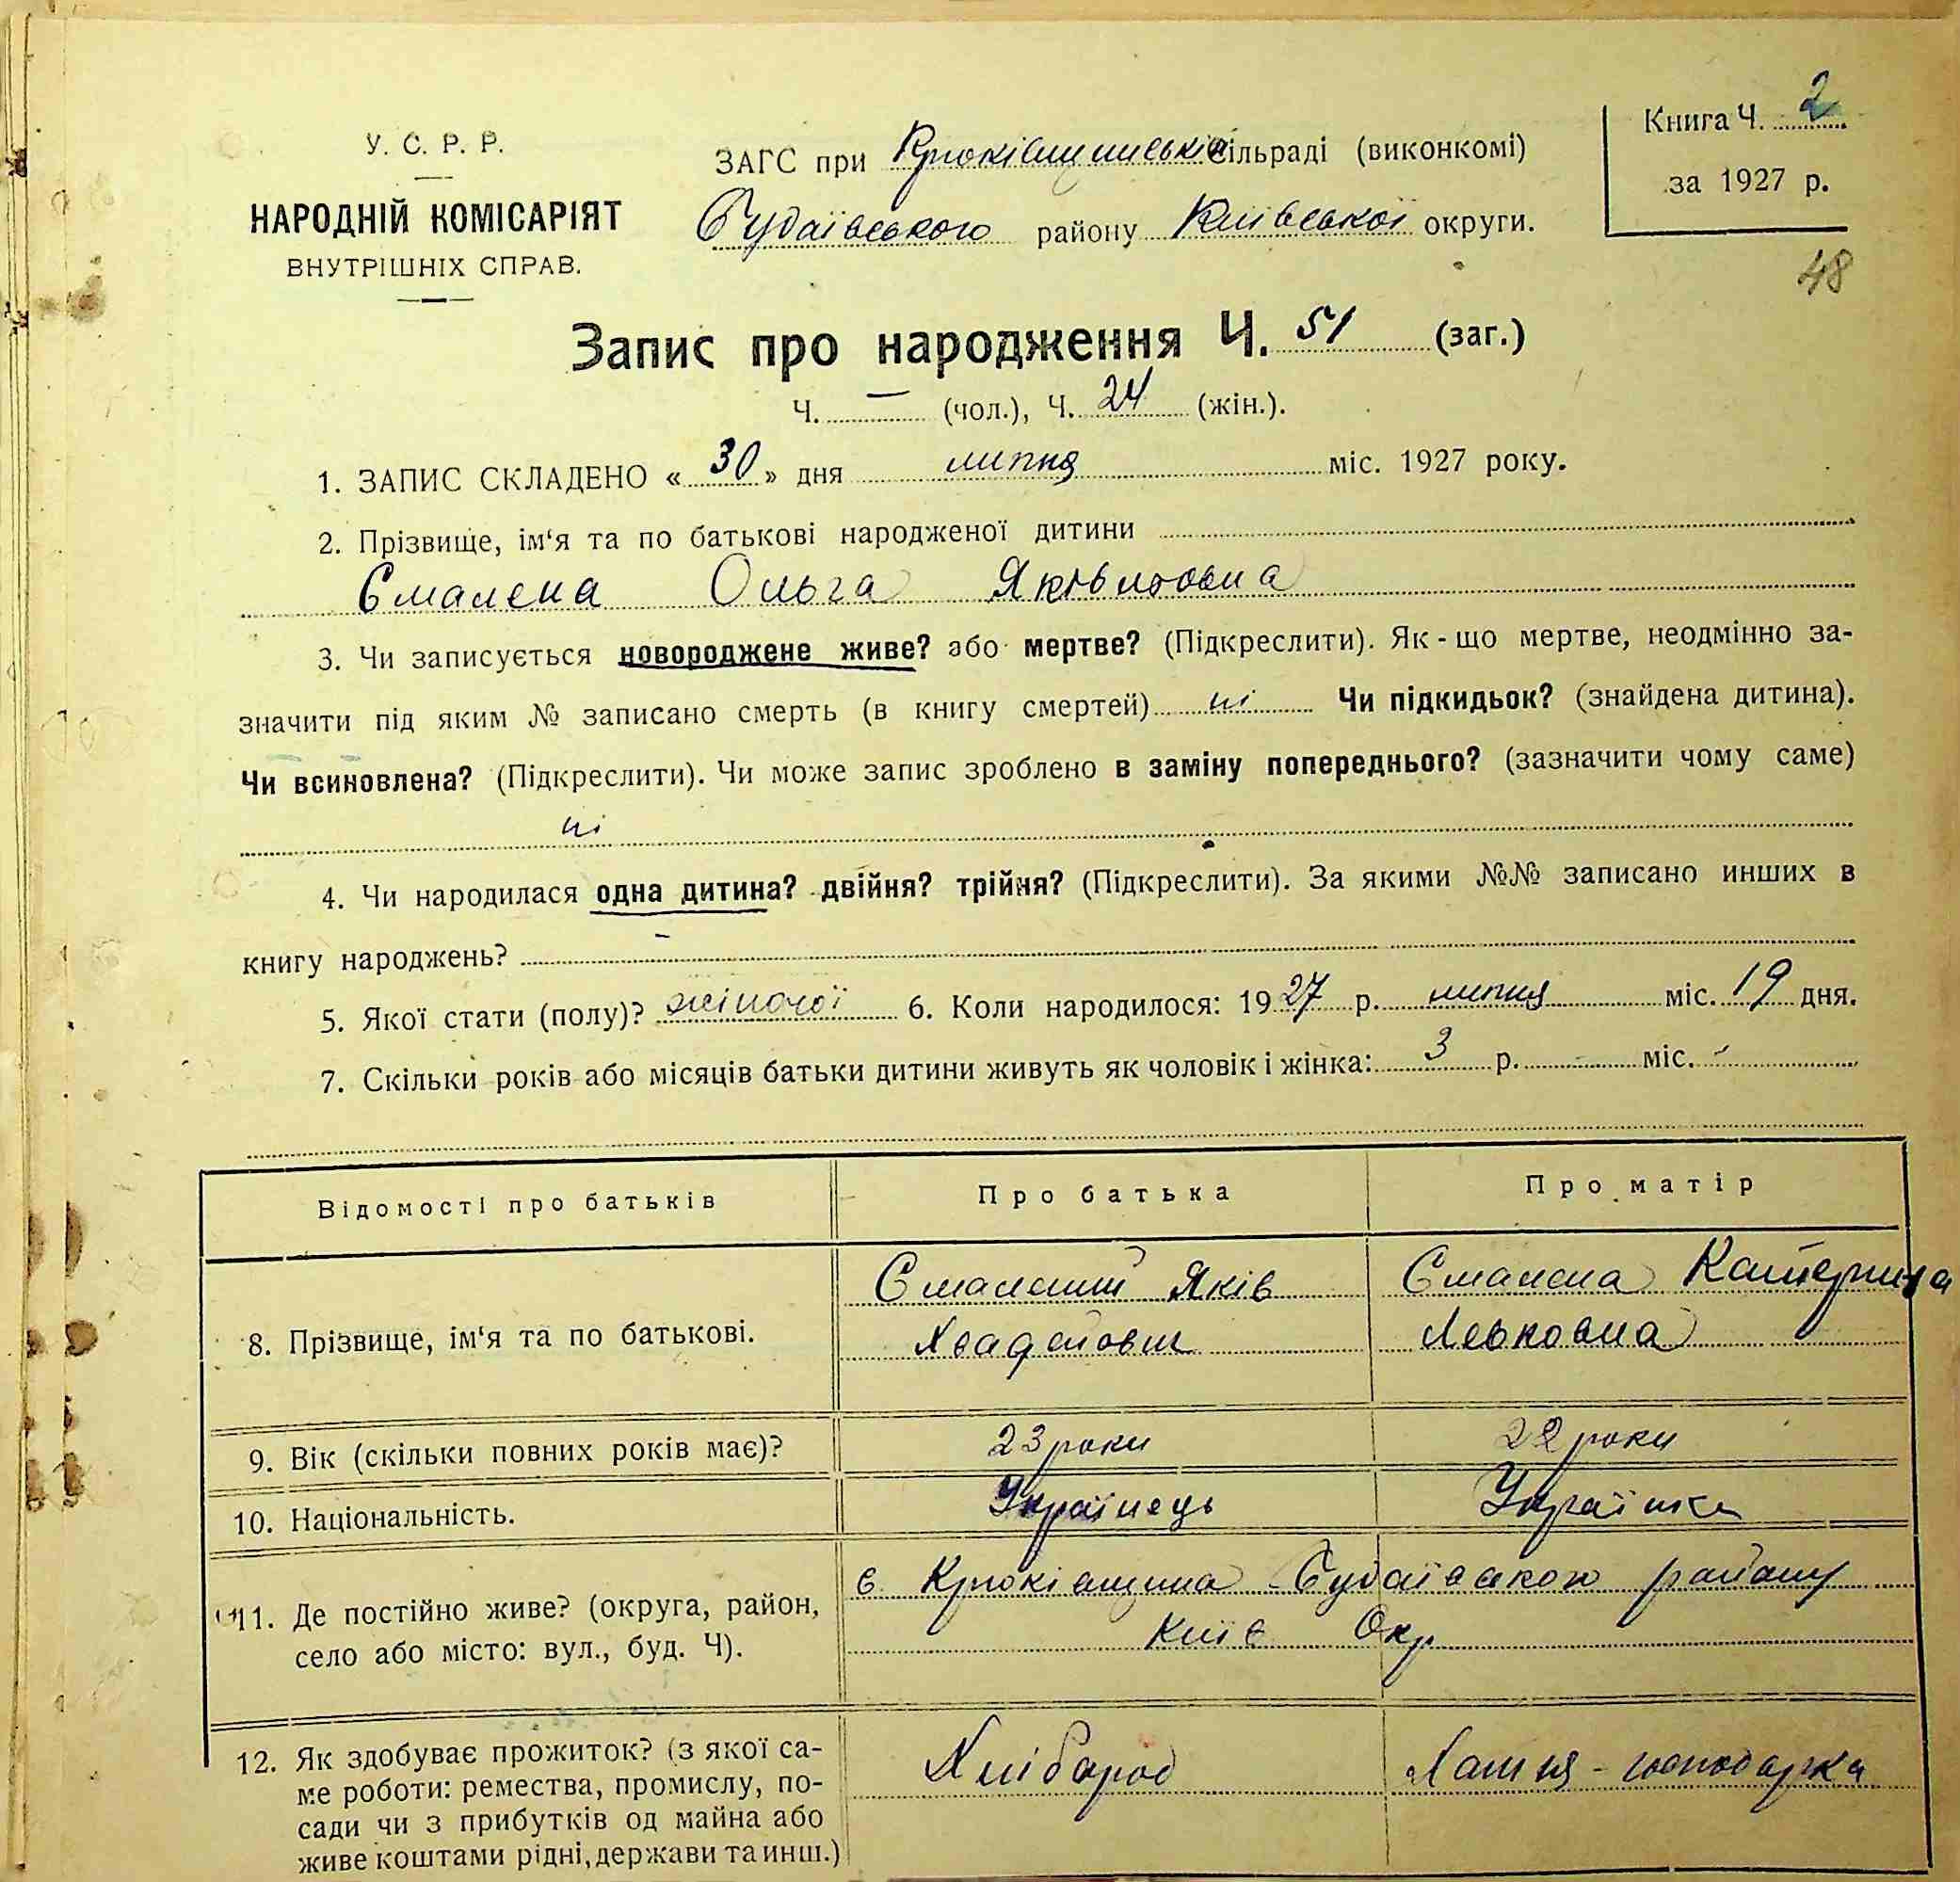 У. С. Р. Р.
НАРОДНІЙ КОМІСАРІЯТ
ВНУТРІШНІХ СПРАВ.
ЗАГС при Крюківщинській сільраді (виконкомі)
Будаївського району Київської округи.
Книга Ч. 2
за 1927 р.
48
Запис про народження Ч. 51 (заг.)
Ч. — (чол.), Ч. 24 (жін.).
1. ЗАПИС СКЛАДЕНО « 30 » дня липня міс. 1927 року.
2. Прізвище, ім‘я та по батькові народженої дитини
Смалена Ольга Яківловна
3. Чи записується новороджене живе? або мертве? (Підкреслити). Як - що мертве, неодмінно за-
значити під яким № записано смерть (в книгу смертей) ні Чи підкидьок? (знайдена дитина).
Чи всиновлена? (Підкреслити). Чи може запис зроблено в заміну попереднього? (зазначити чому саме)
ні
4. Чи народилася одна дитина? двійня? трійня? (Підкреслити). За якими №№ записано инших в
книгу народжень? –
5. Якої стати (полу)? жіночої 6. Коли народилося: 1927 р. липня міс. 19 дня.
7. Скільки років або місяців батьки дитини живуть як чоловік і жінка: 3 р. - міс. -
Відомості про батьків Про батька Про матір
Смалений Яків Смалена Катерина
8. Прізвище, ім‘я та по батькові. Левковна
9. Вік (скільки повних років має)? 23 роки 22 роки
10. Національність. Українець Українка
с. Крюківщина Будаївського району
11. Де постійно живе? (округа, район,
Київ Окр
село або місто: вул., буд. Ч).
12. Як здобуває прожиток? (з якої са-
Хлібороб Хатня - господарка
ме роботи: ремества, промислу, по-
сади чи з прибутків од майна або
живе коштами рідні, держави та инш.)